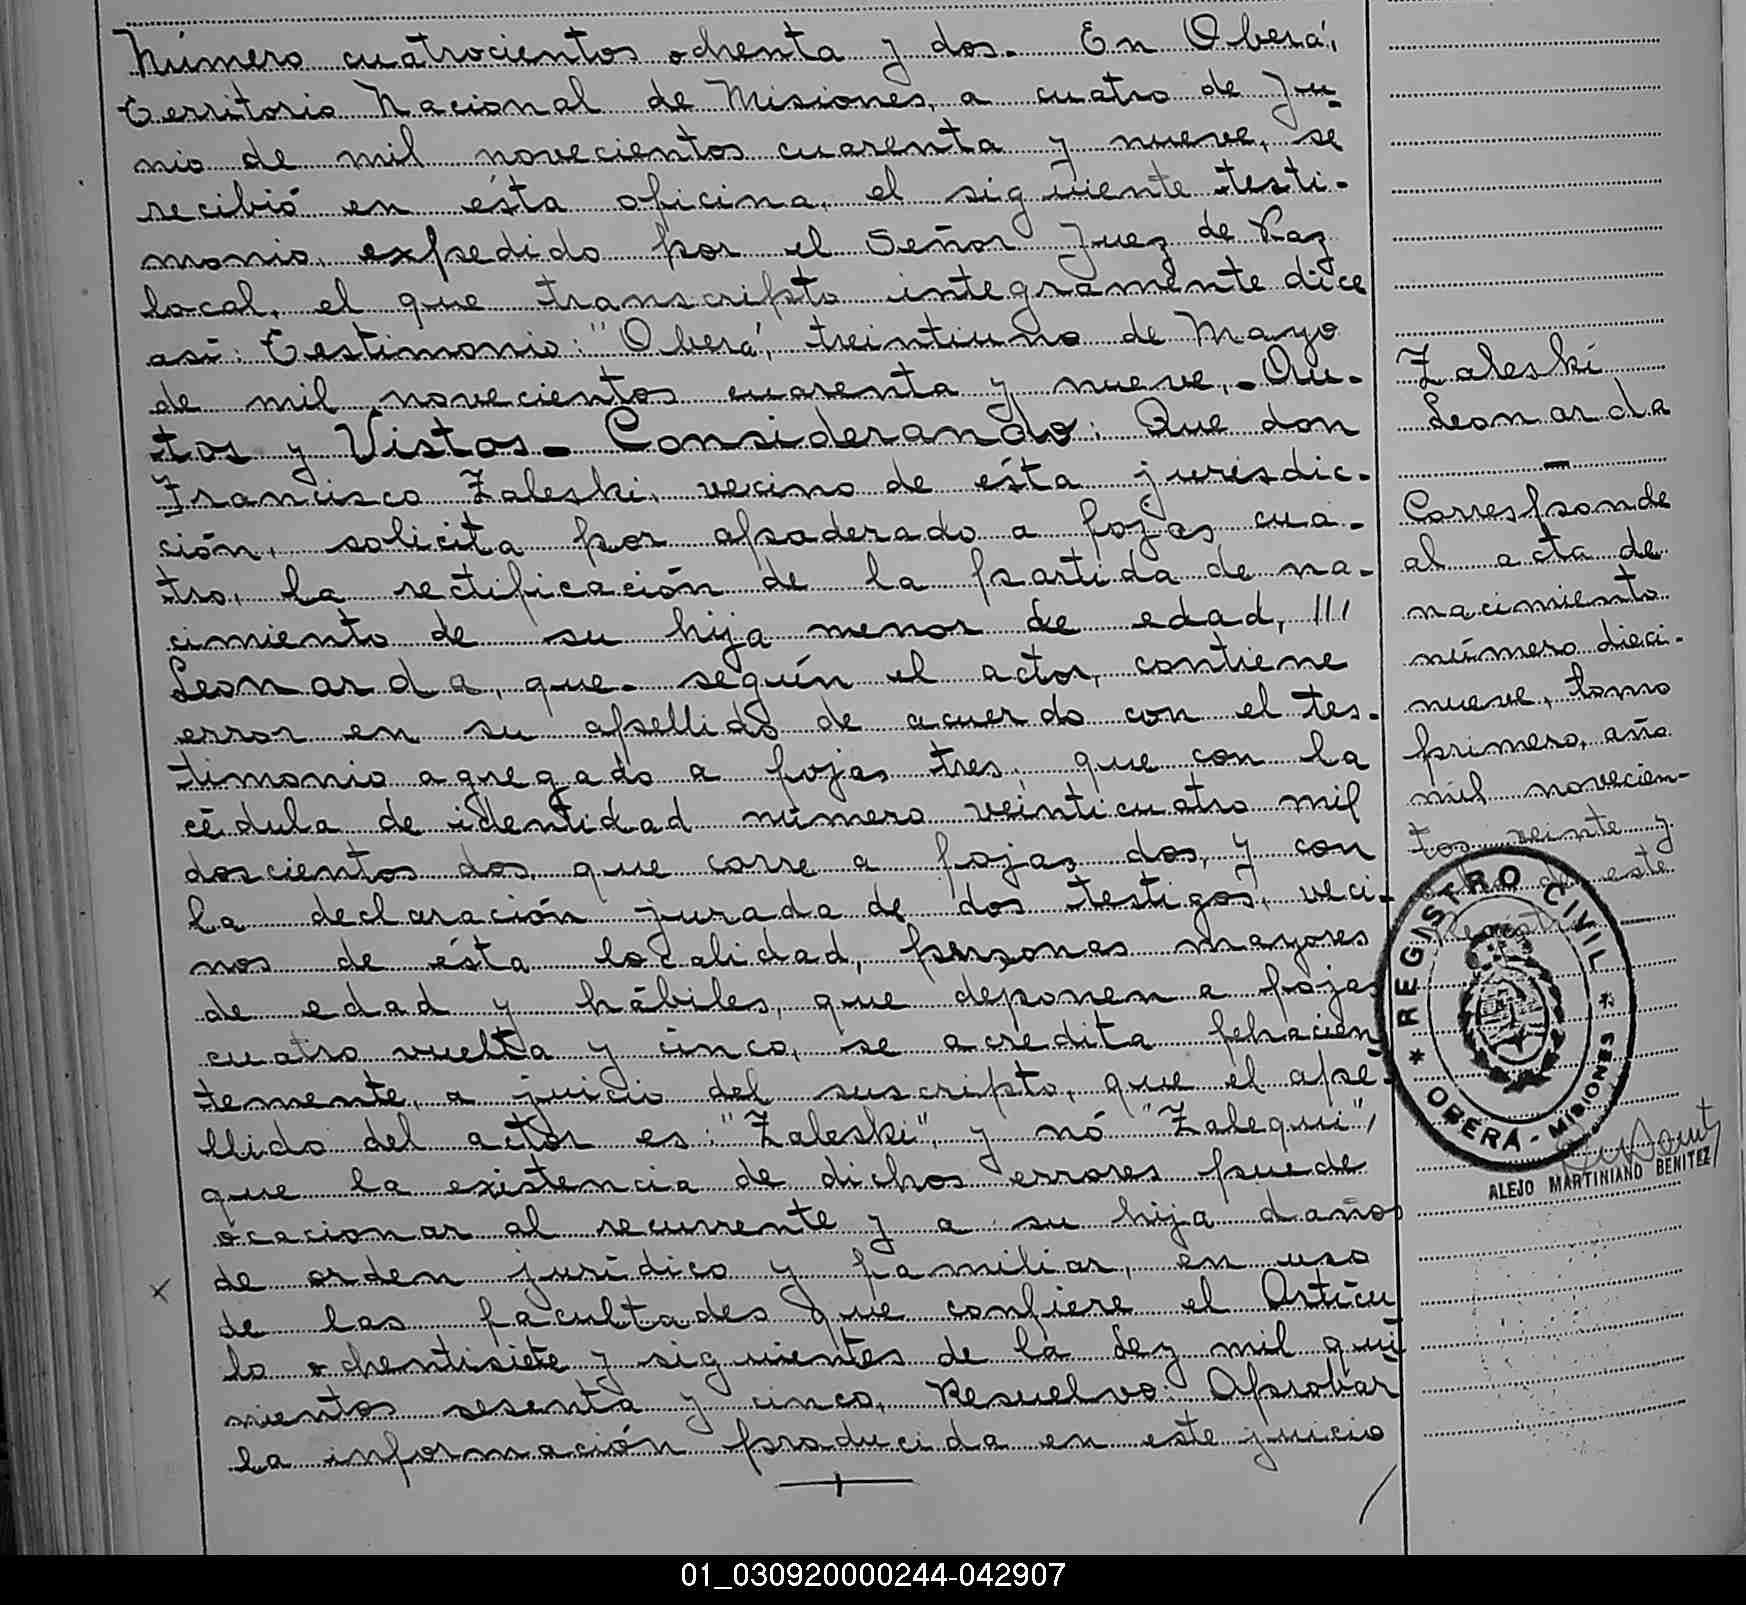 Número cuatrocientos ochenta y dos. En Oberá,
Territorio Nacional de Misiones, a cuatro de Ju-
nio de mil novecientos cuarenta y nueve, se
recibió en ésta oficina, el siguiente testi-
monio, expedido por el Señor Juez de Paz
local, el que transcripto integramente dice
así: Testimonio: "Oberá, treintiuno de Mayo
de mil novecientos cuarenta y nueve,- Au-
tos y Vistos- Considerando: Que don
Francisco Zaleski, vecino de ésta jurisdic-
ción, solicita por apoderado a fojas cua-
tro, la rectificación de la partida de na-
cimiento de su hija menor de edad, ///
Leonarda, que- según el actor, contiene
error en su apellido de acuerdo con el tes-
timonio agregado a fojas tres, que con la
cédula de identidad número veinticuatro mil
doscientos dos, que corre a fojas dos, y con
la declaración jurada de dos testigos, veci-
nos de ésta localidad, personas mayores
de edad y hábiles, que deponen a fojas
cuatro vuelta y cinco, se acredita fehacien-
temente, a juicio del suscripto, que el ape-
llido del actor es: "Zaleski", y nó "Zalequi",
que la existencia de dichos errores puede
ocacionar al recurrente y a su hija daños
de orden jurídico y familiar, en uso
de las facultades que confiere el Artícu
lo ochentisiete y siguientes de la Ley mil qui
nientos sesenta y cinco, Resuelvo: Aprobar
la información producida en este juicio
Zaleski
Leonarda
-
Corresponde
al acta de
nacimiento
número dieci-
nueve, tomo
primero, año
mil novecien-
tos veinte y
de este
Registro
* REGISTRO CIVIL *
OBERA - MISIONES
ALEJO MARTINIANO BENITEZ
01_030920000244-042907